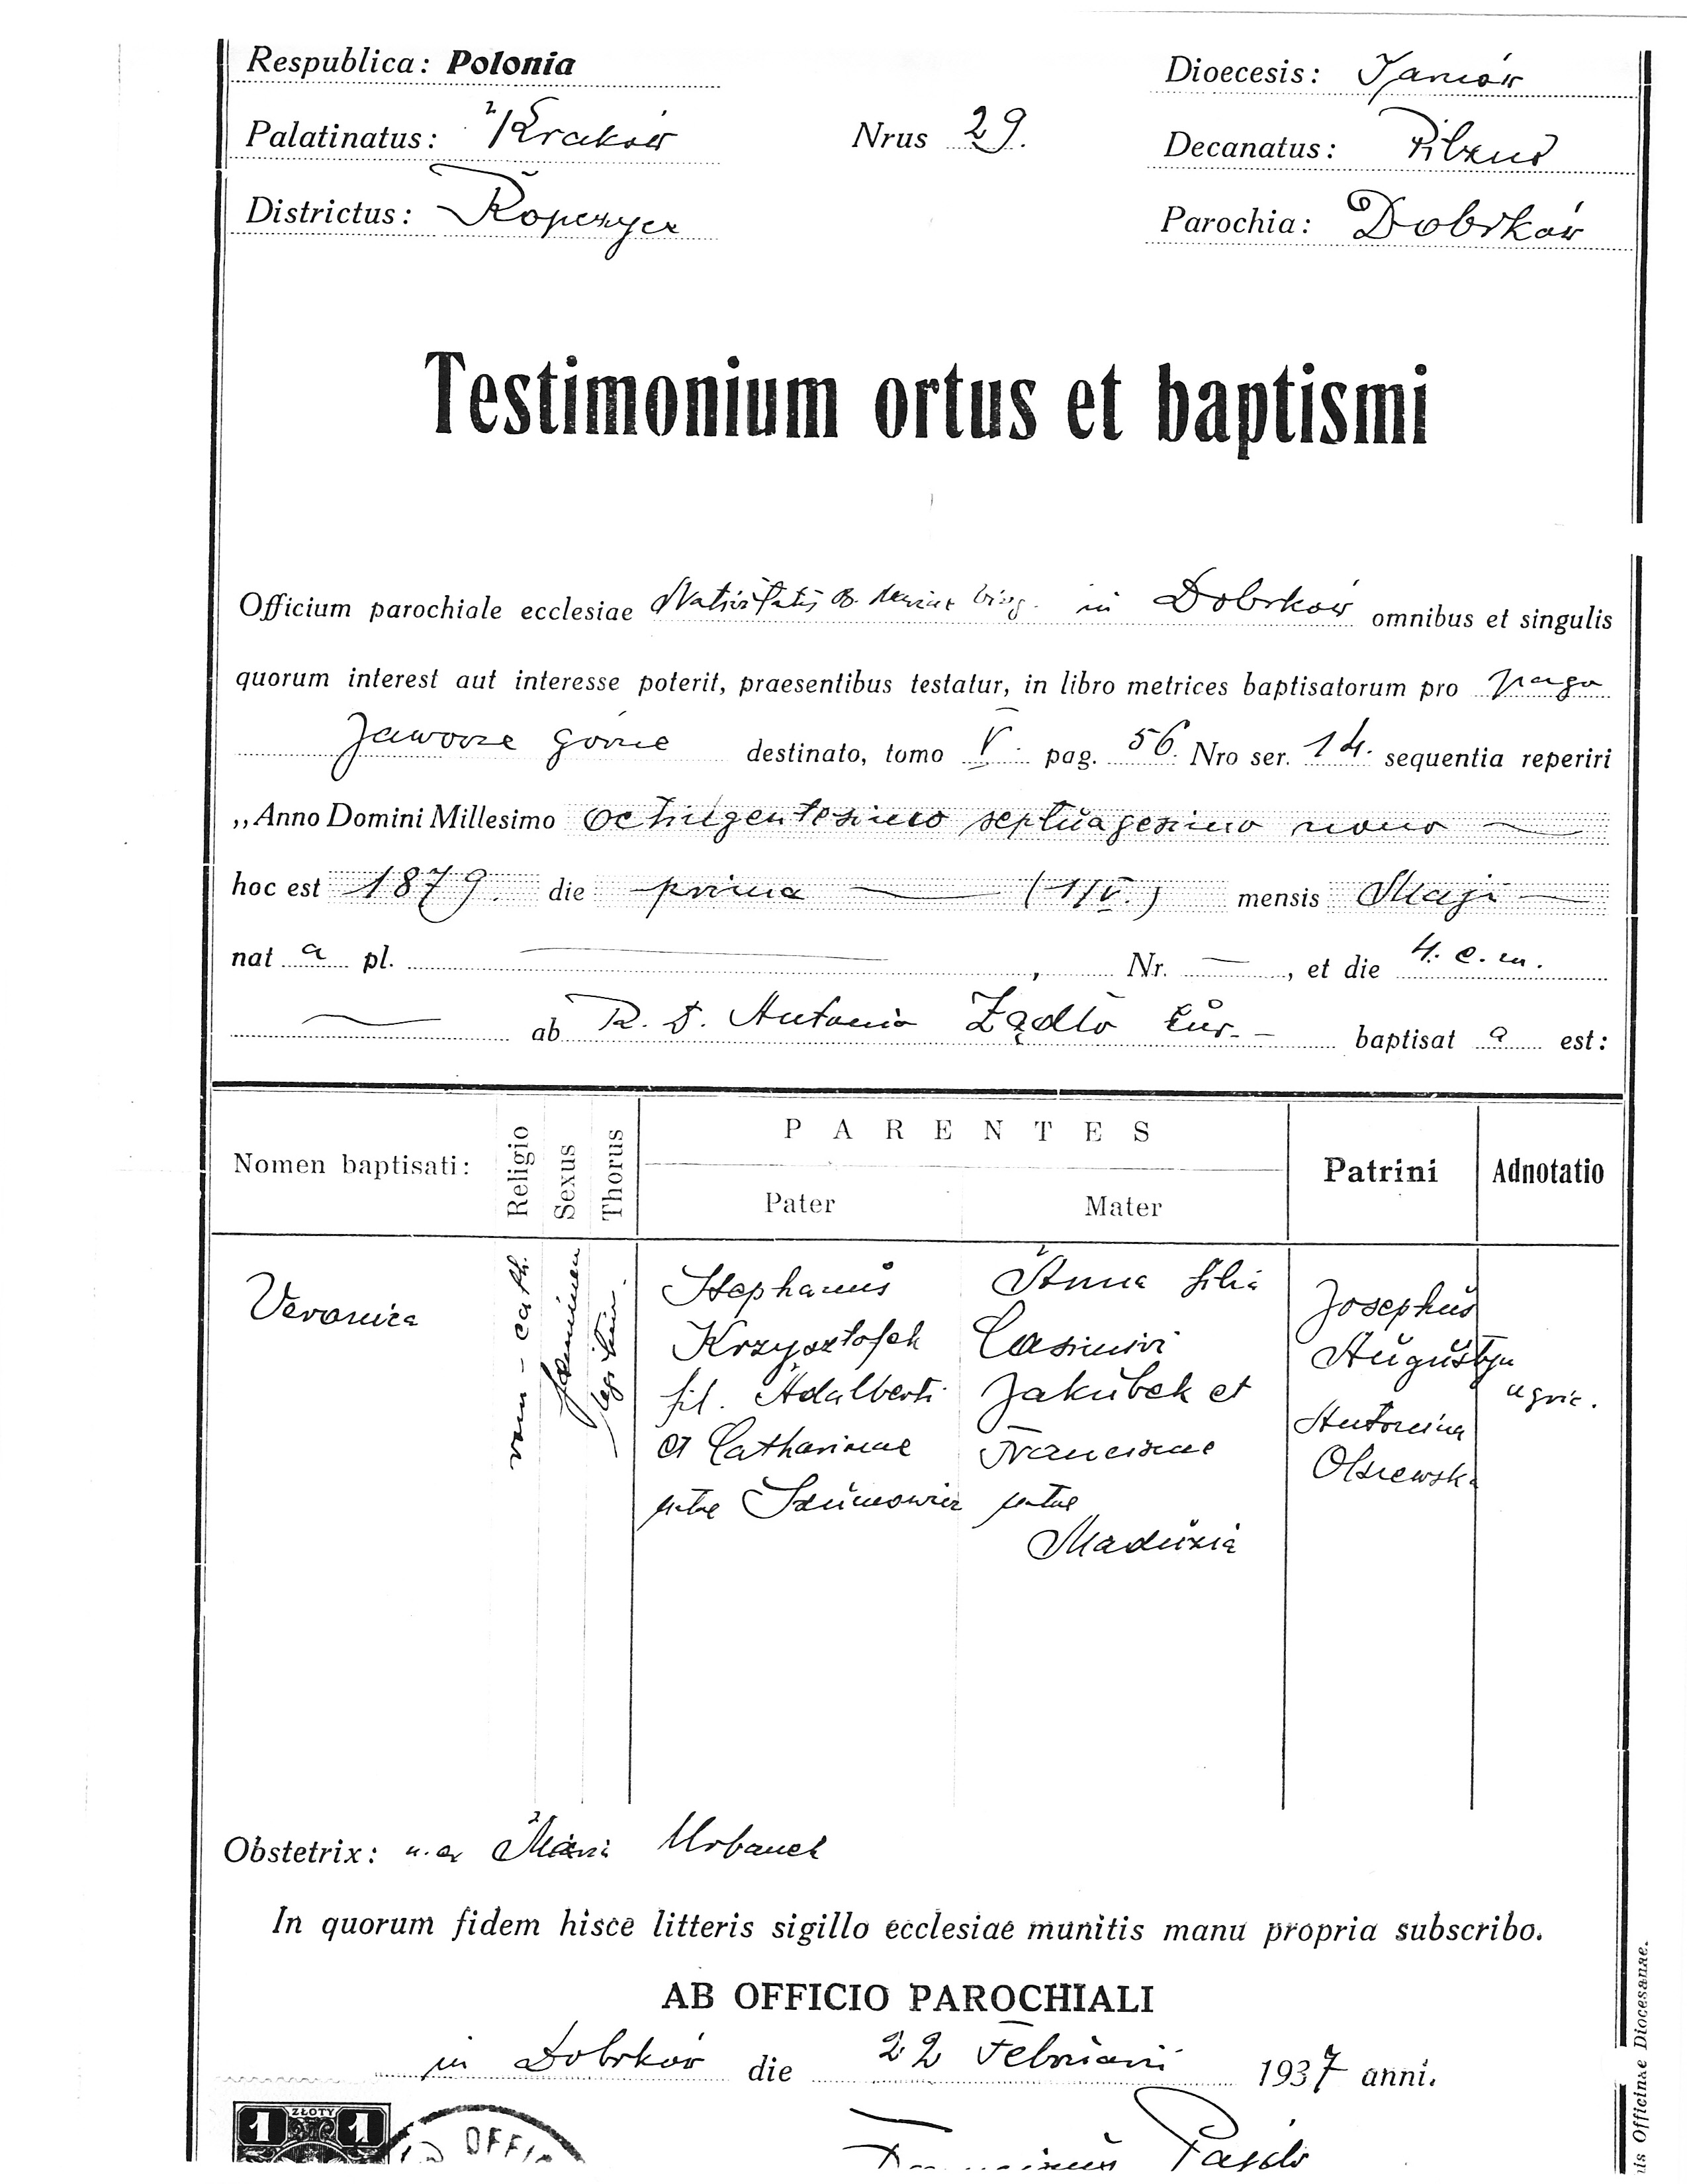 Respublica: Polonia
Dioecesis: Tarnów
Palatinatus: Kraków
Nrus 29.
Decanatus: Pilzno
Districtus: Ropczyce
Parochia: Dobrków
Testimonium ortus et baptismi
Officium parochiale ecclesiae Nativitatis B. Mariae Virg. in Dobrków omnibus et singulis
quorum interest aut interesse poterit, praesentibus testatur, in libro metrices baptisatorum pro pago
Jaworze górne destinato, tomo V. pag. 56. Nro ser. 14. sequentia reperiri
„Anno Domini Millesimo octingentesimo septuagesimo nono
hoc est 1879. die prima (1/V.) mensis Maji
nat a pl. , Nr. — , et die 4. e. m.
ab R. D. Antonio Żądło Cur. — baptisat a est:
Nomen baptisati:
Religio
Sexus
Thorus
PARENTES
Pater
Mater
Patrini
Adnotatio
Veronica
rom - cath.
feminineum
legitim.
Stephanus
Krzysztofek
fil. Adalberti
et Catharinae
natae
Anna filia
Casimiri
Jakubek et
Franciscae
natae
Maduzia
Josephus
Augustyn
agric.
Antonina
Olszewska
Obstetrix: Maria Urbanek
In quorum fidem hisce litteris sigillo ecclesiae munitis manu propria subscribo.
AB OFFICIO PAROCHIALI
in Dobrków die 22 Februarii 1937 anni.
1 ZŁOTY 1
OFFIC
is Officinae Diocesanae.